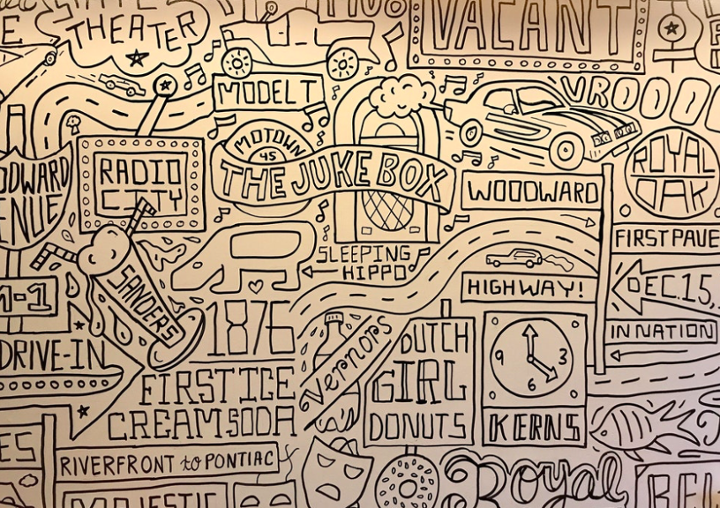 THEATER
VACANT
MODEL T
VROOO
MOTOWN
45
THE JUKE BOX
RADIO
CITY
WOODWARD
ROYAL
OAK
FIRST PAVE
SLEEPING
HIPPO
HIGHWAY!
DEC. 15,
IN NATION
M-1
SANDERS
DRIVE-IN
1876
FIRST ICE
CREAM SODA
Vernors
DUTCH
GIRL
DONUTS
9 3
6
KERNS
RIVERFRONT to PONTIAC
MAJESTIC
Royal